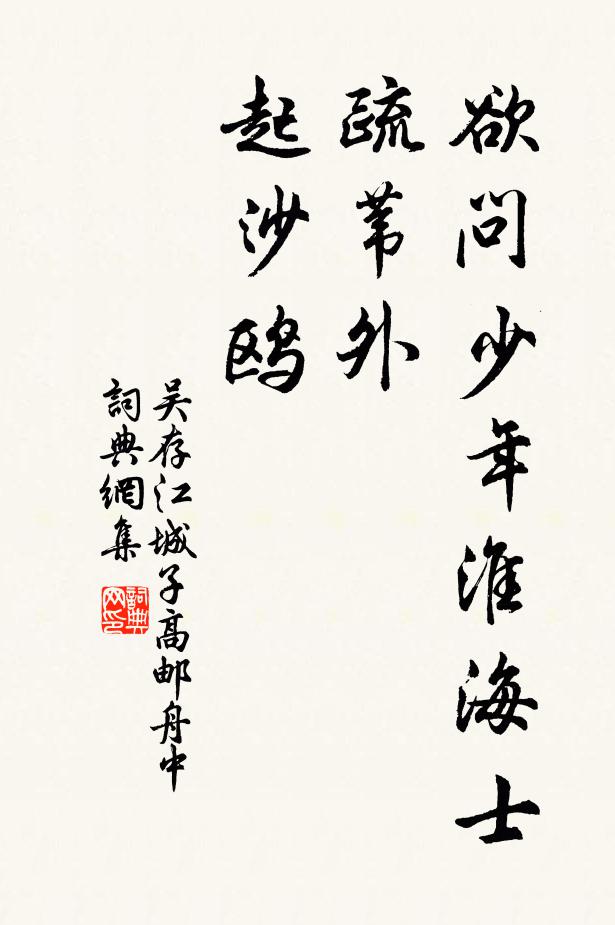 欲问少年淮海士
疏苇外
起沙鸥
吴存江城子高邮舟中
詞典網集
詞典网印